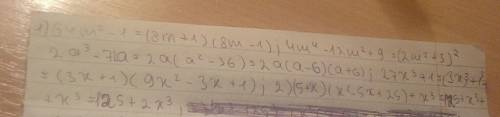 1) 64m²-1=(8m+1)(8m-1); 4m⁴-12m²+9=(2m²+3)²
2a³-71a=2a(a²-36)=2a(a-6)(a+6); 27x³+1=(3x)³+1=
=(3x+1)(9x²-3x+1); 2)(5+x)(x²-5x+25)+x³=125+x³+
+x³=125+2x³;